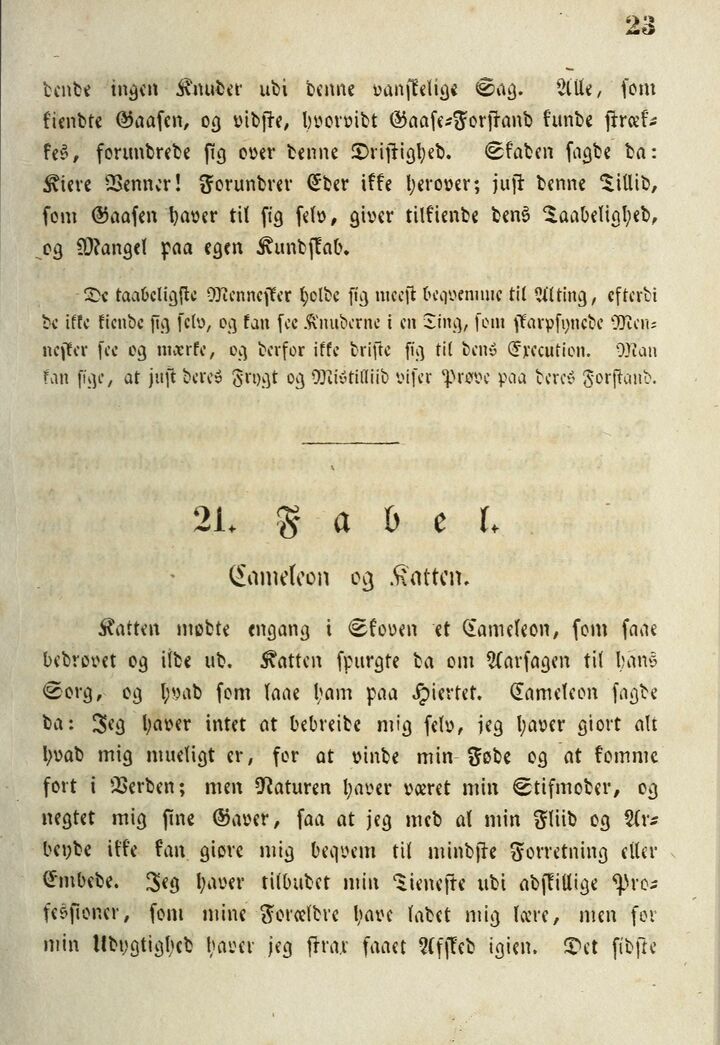 23
dende ingen Knuder udi denne vanskelige Sag. Alle, som
kiendte Gaasen, og vidste, hvorvidt Gaase-Forstand kunde stræk-
kes, forundrede sig over denne Dristighed. Skaden sagde da:
Kiere Venner! Forundrer Eder ikke herover; just denne Tillid,
som Gaasen haver til sig selv, giver tilkiende dens Taabelighed,
og Mangel paa egen Kundskab.
De taabeligste Mennesker holde sig meest beqvemme til Alting, efterdi
de ikke kiende sig selv, og kan see Knuderne i en Ting, som skarpsynede Men-
nesker see og mærke, og derfor ikke driste sig til dens Execution. Man
kan sige, at just deres Frygt og Mistilliid viser Prøve paa deres Forstand.
21. Fabel.
Cameleon og Katten.
Katten mødte engang i Skoven et Cameleon, som saae
bedrøvet og ilde ud. Katten spurgte da om Aarsagen til hans
Sorg, og hvad som laae ham paa Hiertet. Cameleon sagde
da: Jeg haver intet at bebreide mig selv, jeg haver giort alt
hvad mig mueligt er, for at vinde min Føde og at komme
fort i Verden; men Naturen haver været min Stifmoder, og
negtet mig sine Gaver, saa at jeg med al min Fliid og Ar-
beyde ikke kan giøre mig beqvem til mindste Forretning eller
Embede. Jeg haver tilbudet min Tieneste udi adskillige Pro-
fessioner, som mine Forældre have ladet mig lære, men for
min Udygtighed haver jeg strax faaet Afsked igien. Det sidste